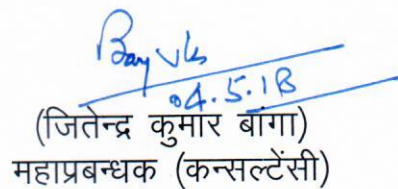 04.5.18
(जितेन्द्र कुमार बांगा)
महाप्रबन्धक (कन्सल्टेंसी)